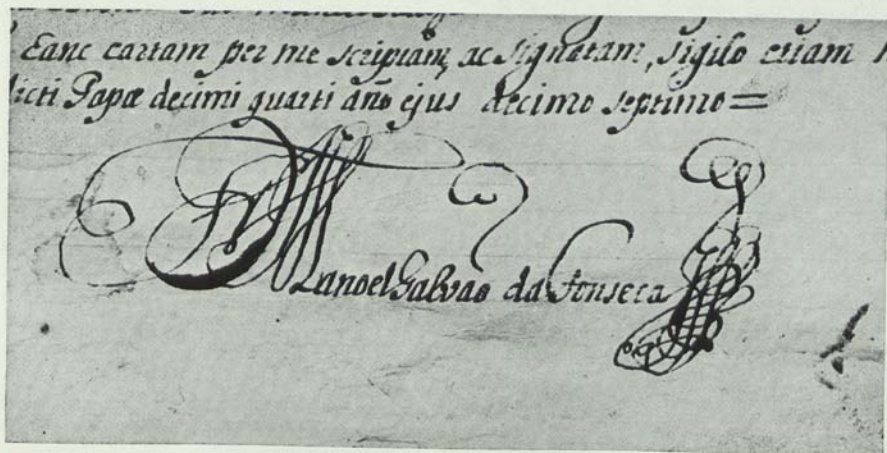 Eanc cartam per me scriptam, ac signatam, sigilo etiam
dicti Papæ decimi quarti año ejus decimo septimo =
Fr Manoel Galvao da Fonseca